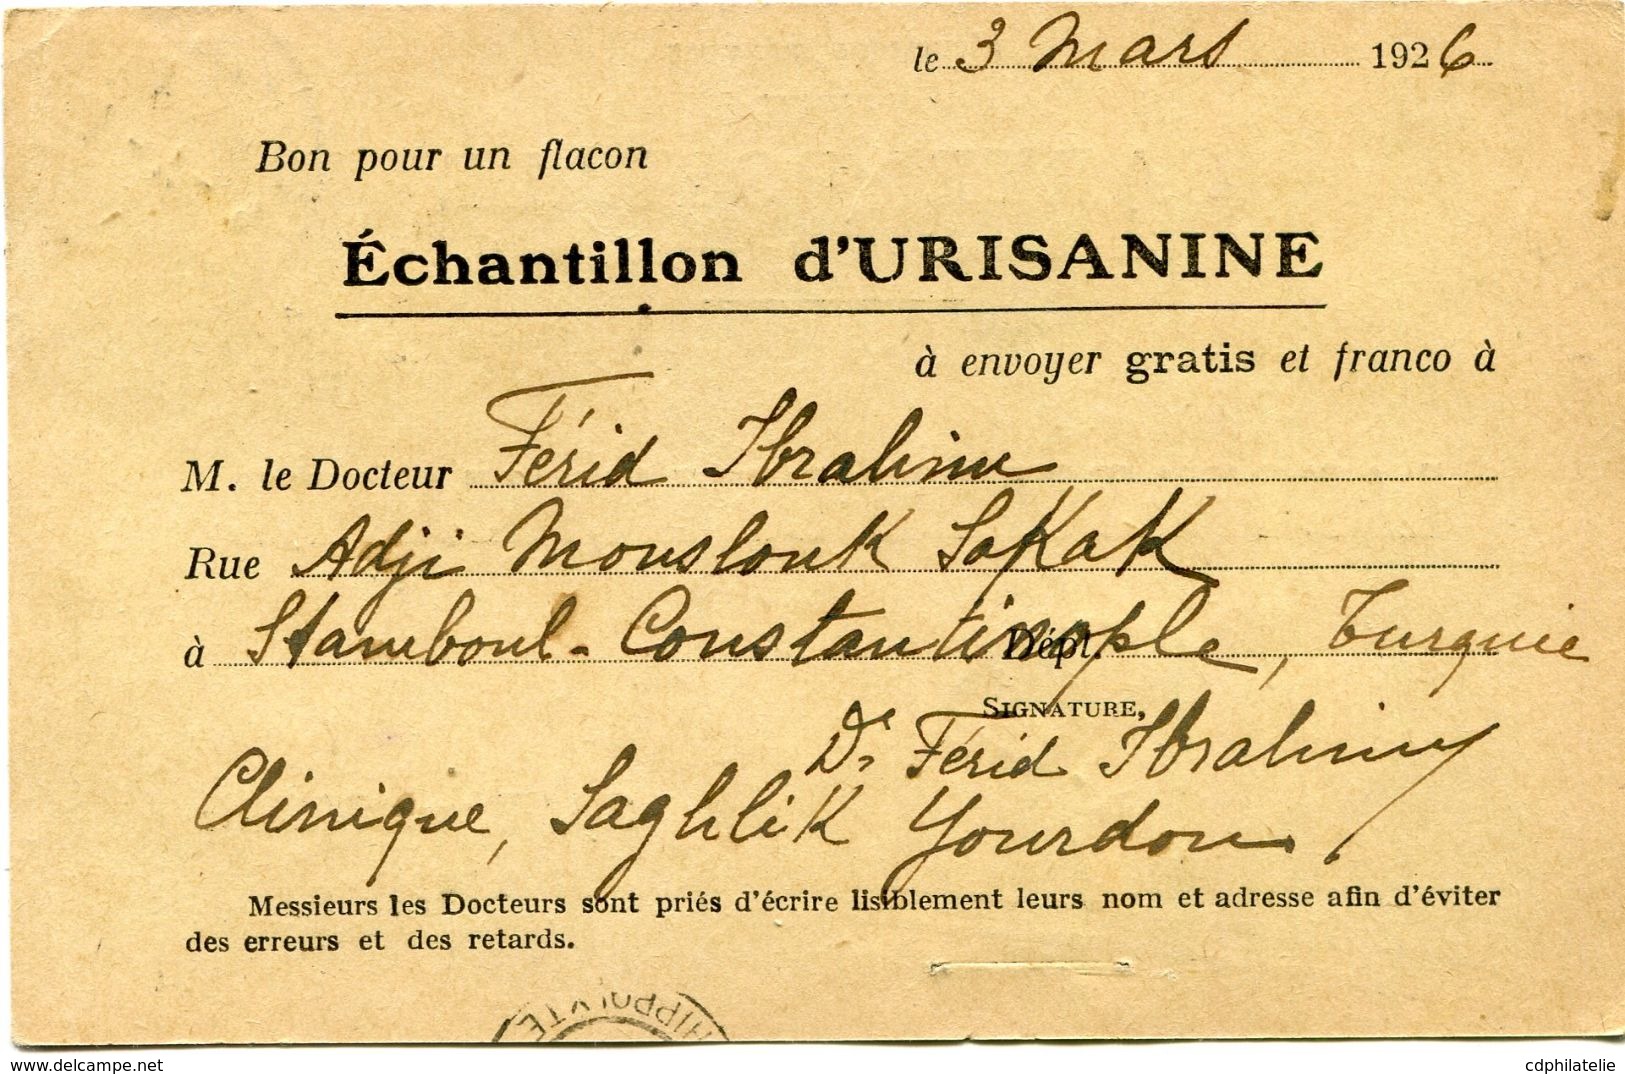 le 3 Mars 1926
Bon pour un flacon
Échantillon d'URISANINE
à envoyer gratis et franco à
M. le Docteur Férid Ibrahim
Rue Adji Mouslouk Sokak
à Stamboul - Constantinople, Turquie
Dépt.
SIGNATURE,
Dr Férid Ibrahim
Clinique, Saghlik Yourdou
Messieurs les Docteurs sont priés d'écrire lisiblement leurs nom et adresse afin d'éviter
des erreurs et des retards.
HIPPOLYTE
www.delcampe.net
cdphilatelie